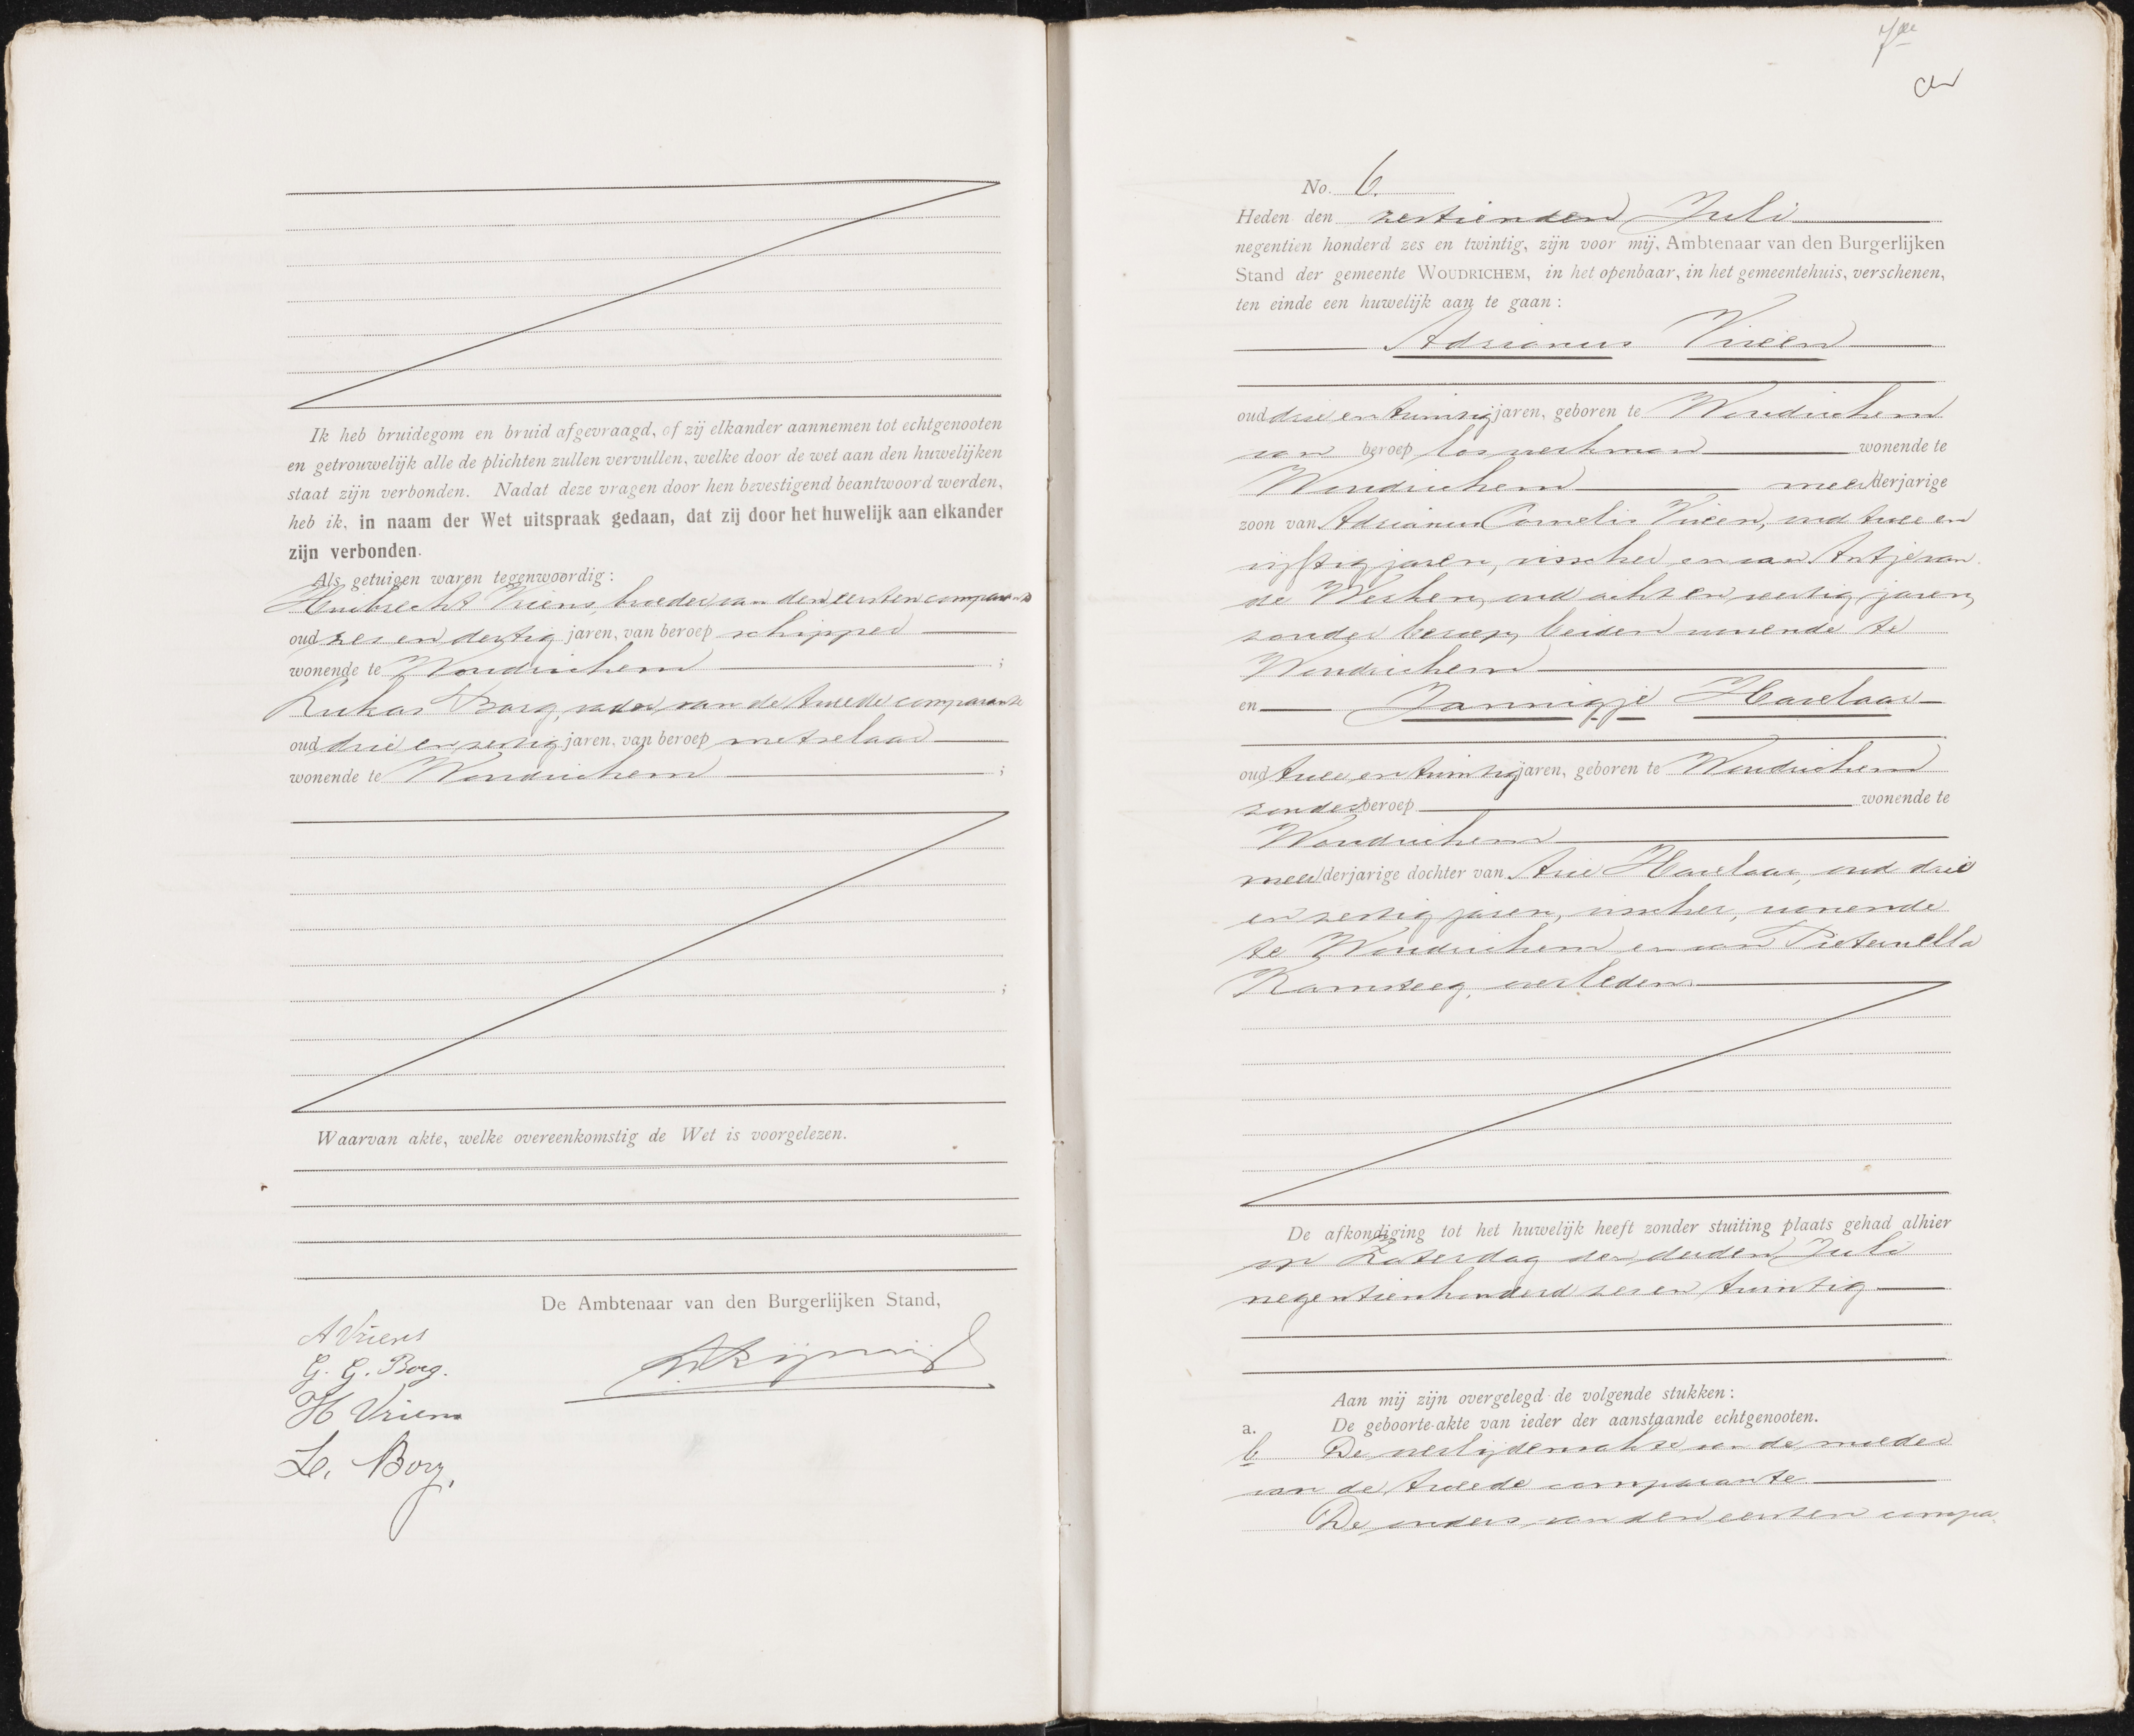 Ik heb bruidegom en bruid afgevraagd, of zij elkander aannemen tot echtgenooten
en getrouwelijk alle de plichten zullen vervullen, welke door de wet aan den huwelijken
staat zijn verbonden. Nadat deze vragen door hen bevestigend beantwoord werden,
heb ik, in naam der Wet uitspraak gedaan, dat zij door het huwelijk aan elkander
zijn verbonden.
Als getuigen waren tegenwoordig:
Huibrecht Vriens, broeder van den eersten comparant
oud zes en dertig jaren, van beroep schipper
wonende te Woudrichem ;
Lukas Borg, vader van de tweede comparante
oud drie en zestig jaren, van beroep metselaar
wonende te Woudrichem ;
;
Waarvan akte, welke overeenkomstig de Wet is voorgelezen.
De Ambtenaar van den Burgerlijken Stand,
A Vriens
G. G. Borg.
H Vriens
L. Borg.
7de
No. 6.
Heden den zestienden Juli
negentien honderd zes en twintig, zijn voor mij, Ambtenaar van den Burgerlijken
Stand der gemeente WOUDRICHEM, in het openbaar, in het gemeentehuis, verschenen,
ten einde een huwelijk aan te gaan:
Adrianus Vieën
oud drie en twintig jaren, geboren te Woudrichem
van beroep los werkman wonende te
Woudrichem meerderjarige
zoon van Adrianus Cornelis Vieën, oud twee en
vijftig jaren, visscher en van Antje van
de Werken, oud acht en veertig jaren,
zonder beroep, beiden wonende te
Woudrichem
en Jannigje Havelaar
oud twee en twintig jaren, geboren te Woudrichem
zonder beroep wonende te
Woudrichem
meerderjarige dochter van Arie Havelaar, oud drie
en zestig jaren, visscher, wonende
te Woudrichem en van Pieternella
Ramsteeg, overleden.
De afkondiging tot het huwelijk heeft zonder stuiting plaats gehad alhier
op Zaterdag den derden Juli
negentienhonderd zes en twintig
Aan mij zijn overgelegd de volgende stukken:
a. De geboorte-akte van ieder der aanstaande echtgenooten.
b De overlijdensakte van de moeder
van de tweede comparante.
De ouders van den eersten compa-